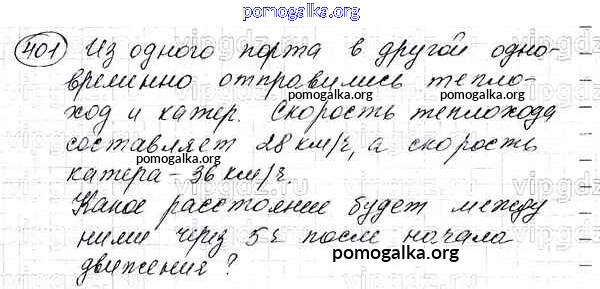 pomogalka.org
401 Из одного порта в другой одно-
временно отправились тепло-
pomogalka.org
ход и катер. Скорость теплохода
составляет 28 км/ч, а скорость
pomogalka.org
катера - 36 км/ч.
Какое расстояние будет между
ними через 5 ч после начала
движения?
pomogalka.org